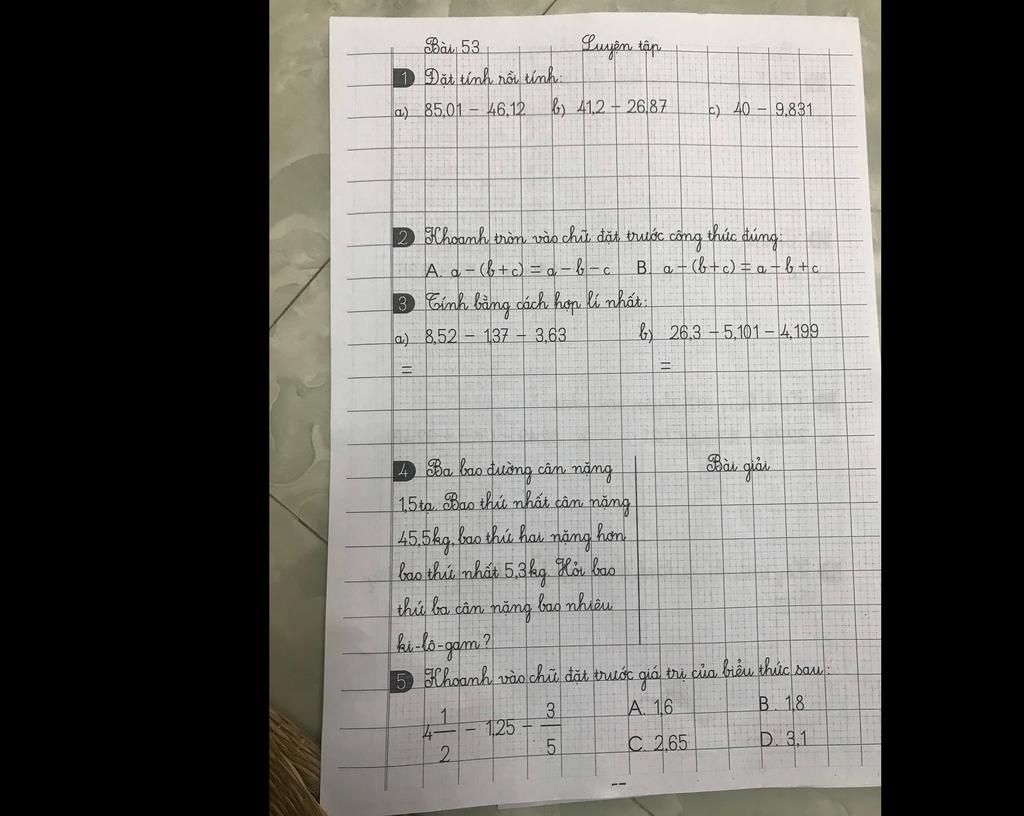 Bài 53 Luyện tập
1 Đặt tính rồi tính:
a) 85,01 - 46,12 b) 41,2 - 26,87 c) 40 - 9,831
2 Khoanh tròn vào chữ đặt trước công thức đúng:
A. a - (b + c) = a - b - c B. a - (b + c) = a - b + c
3 Tính bằng cách hợp lí nhất:
a) 8,52 - 1,37 - 3,63 b) 26,3 - 5,101 - 4,199
= =
4 Ba bao đường cân nặng
1,5tạ. Bao thứ nhất cân nặng
45,5kg, bao thứ hai nặng hơn
bao thứ nhất 5,3kg. Hỏi bao
thứ ba cân nặng bao nhiêu
ki-lô-gam?
Bài giải
5 Khoanh vào chữ đặt trước giá trị của biểu thức sau:
4 1/2 - 1,25 - 3/5 A. 1,6 B. 1,8
C. 2,65 D. 3,1
--